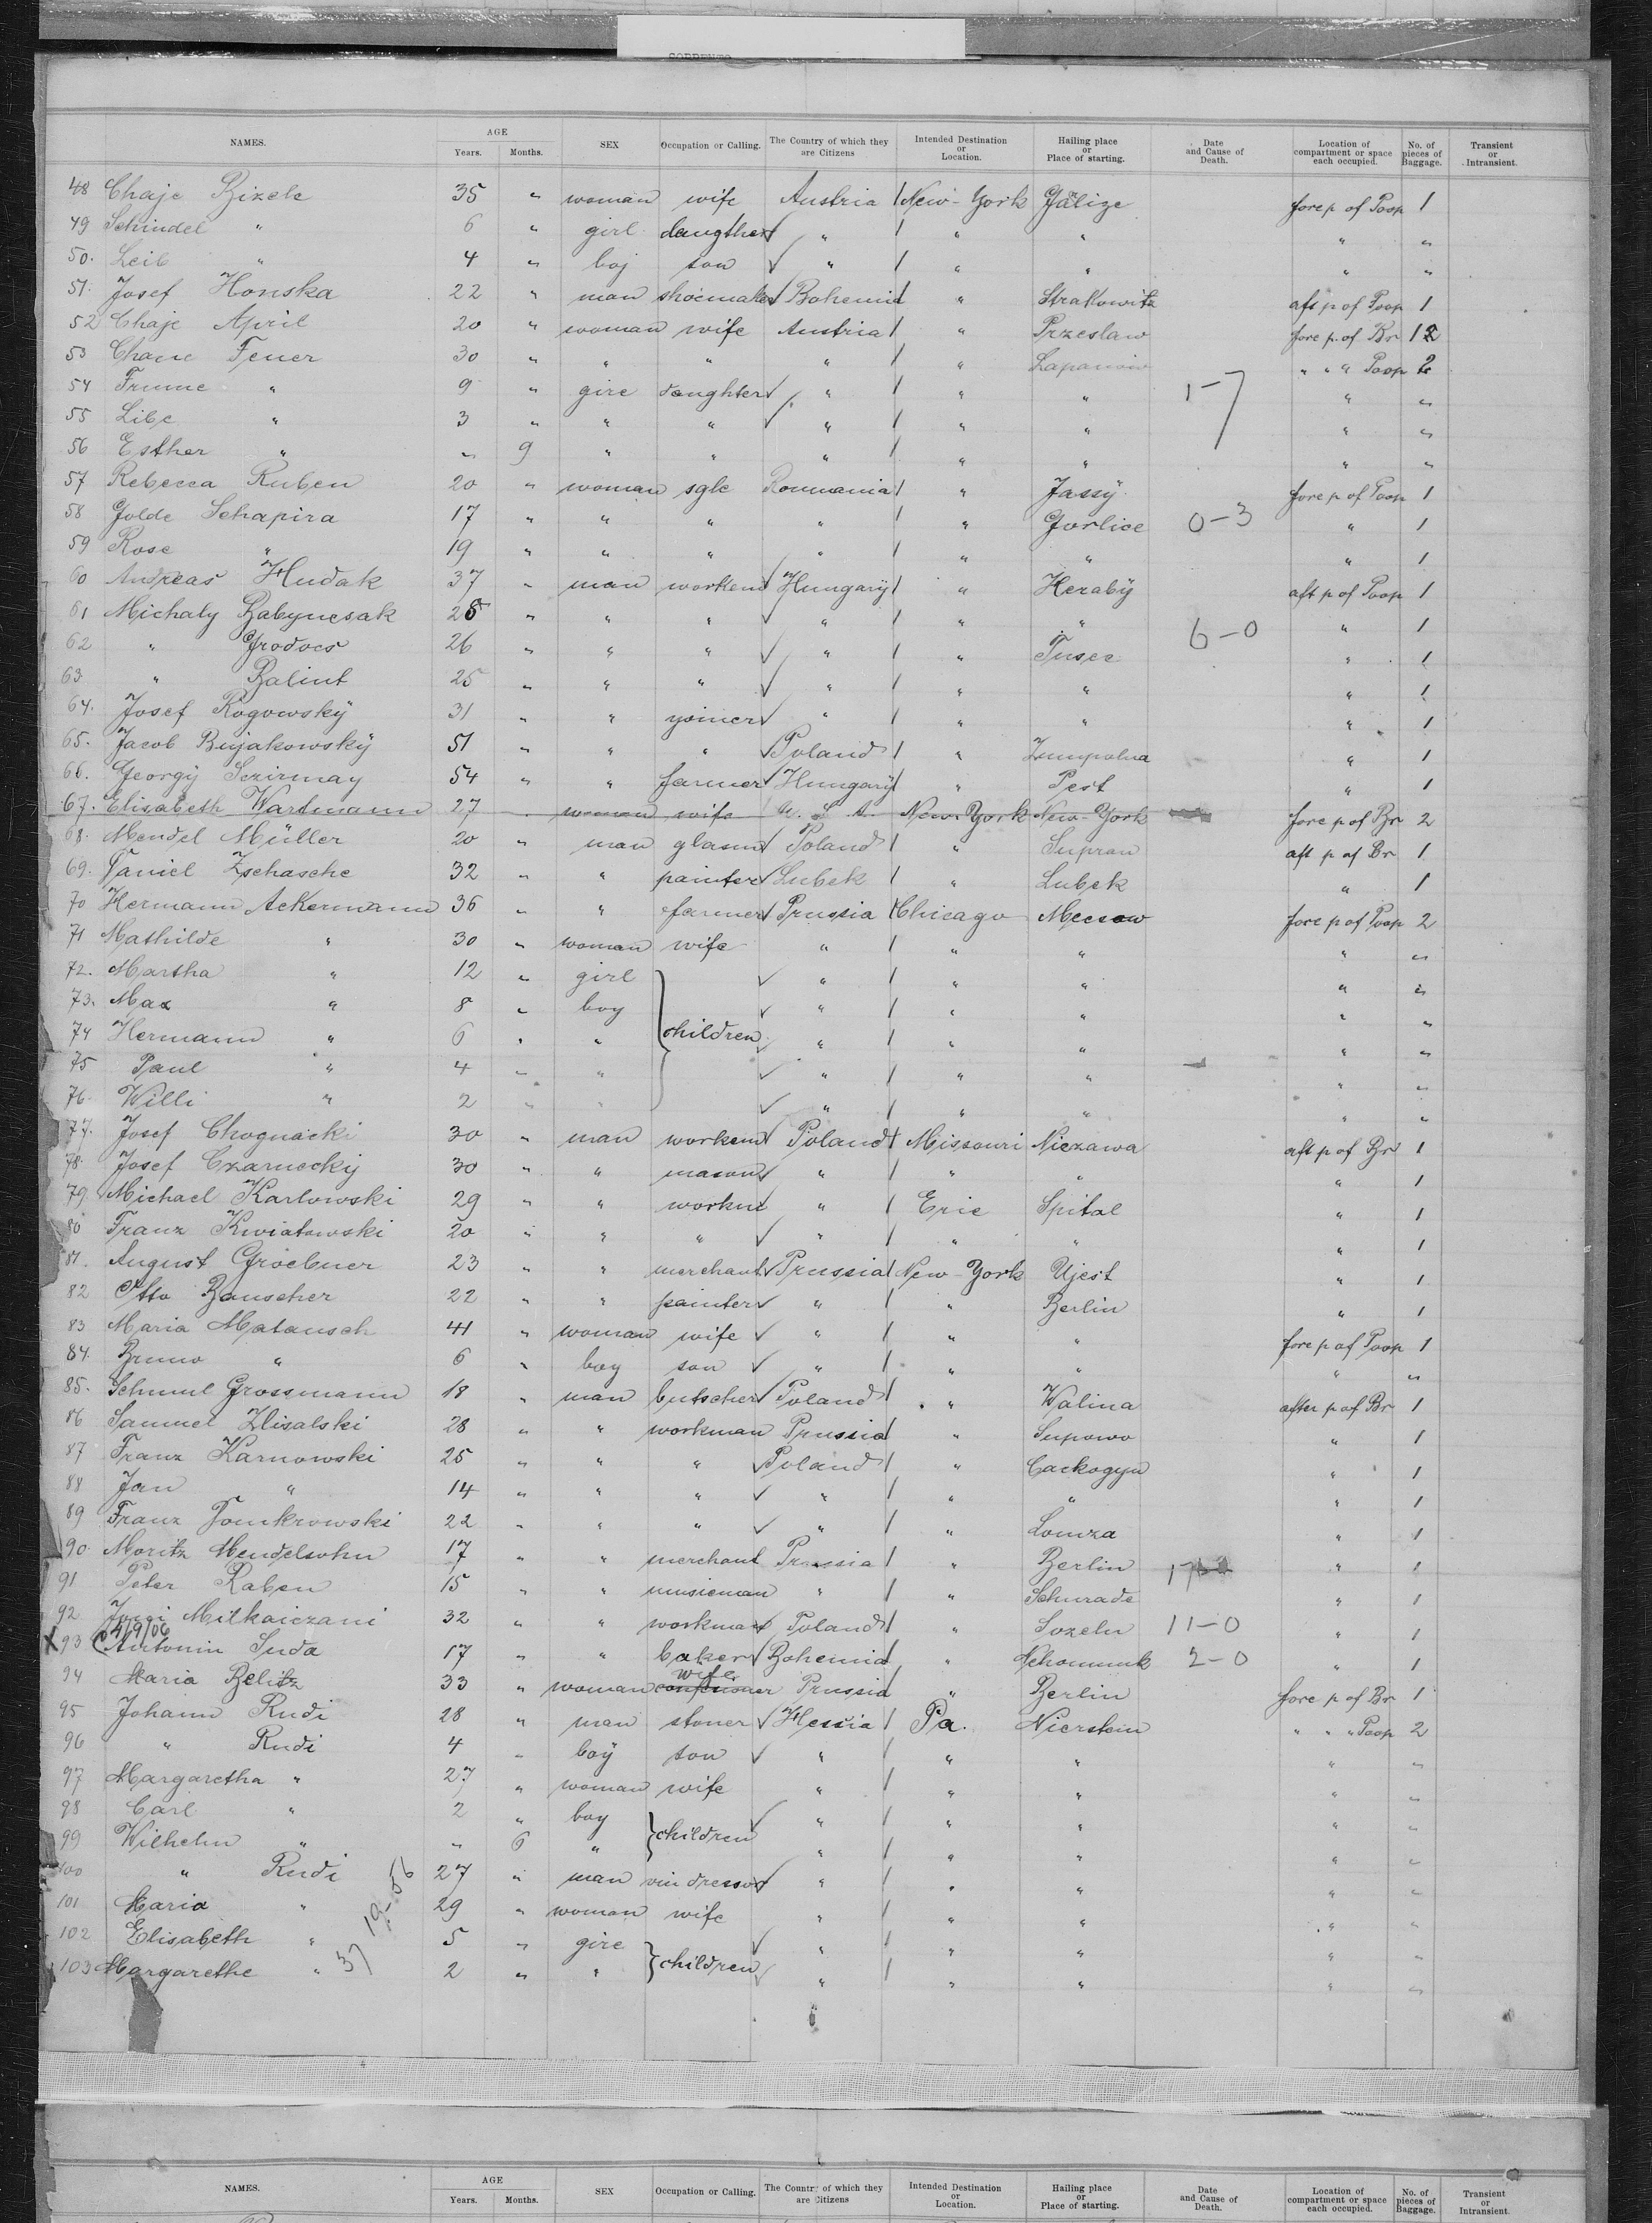 NAMES. AGE Years. Months. SEX Occupation or Calling. The Country of which they are Citizens Intended Destination or Location. Hailing place or Place of starting. Date and Cause of Death. Location of compartment or space each occupied. No. of pieces of Baggage. Transient or Intransient.
48 Chaje Bizele 35 " woman wife Austria New-York Galize fore p of Poop 1
49 Schindel " 6 " girl daugther " " " " "
50. Leib " 4 " boj son " " " " "
51. Josef Honska 22 " man shoemaker Bohemia " Strakowitz aft p of Poop 1
52 Chaje April 20 " woman wife Austria " Przeslaw fore p. of Br 1
53 Chane Feuer 30 " " " " " Lapanow " " " Poop 2
54 Frume " 9 " girl daughter " " " 1-7 " "
55 Libe " 3 " " " " " " " "
56 Esther " " 9 " " " " " " "
57 Rebecca Ruben 20 " woman sgle Roumania " Jassy fore p of Poop 1
58 Golde Schapira 17 " " " " " Gorlice 0-3 " 1
59 Rose " 19 " " " " " " " 1
60 Andreas Hudak 37 " man workem Hungary " Heraby aft p of Poop 1
61 Michaly Babyncsak 28 " " " " " " " 1
62 " Grodocs 26 " " " " " Tusce 6-0 " 1
63 " Balint 25 " " " " " " " 1
64. Josef Rogowsky 31 " " yoiner " " " " 1
65. Jacob Bujakowsky 51 " " " Poland " Zumpolna " 1
66. Georgy Sczirmay 54 " " farmer Hungary " Pest " 1
67. Elisabeth Wartmann 27 " woman wife U. S. A. New-York New-York fore p of Br 2
68. Mendel Müller 20 " man glasm Poland " Supran aft p of Br 1
69. Daniel Zschasche 32 " " painter Lubek " Lubek " 1
70 Hermann Ackermann 36 " " farmer Prussia Chicago Meesow fore p of Poop 2
71 Mathilde " 30 " woman wife " " " " "
72. Martha " 12 " girl " " " " "
73. Max " 8 " boy " " " " "
74 Hermann " 6 " " children " " " " "
75 Paul " 4 " " " " " " "
76. Willi " 2 " " " " " " "
77. Josef Chognacki 30 " man workem Poland Missouri Niezawa aft p of Br 1
78. Josef Czarnecky 30 " " mason " " " " 1
79. Michael Karlowski 29 " " workm " Erie Spital " 1
80 Franz Kwiatowski 20 " " " " " " " 1
81. August Groebner 23 " " merchant Prussia New-York Ujest " 1
82 Otto Bauscher 22 " " painter " " Berlin " 1
83 Maria Matausch 41 " woman wife " " " fore p of Poop 1
84. Bruno " 6 " boy son " " " " "
85. Schmul Grossmann 18 " man butscher Poland " Walina after p of Br 1
86 Samuel Zlisalski 28 " " workman Prussia " Supowo " 1
87 Franz Karnowski 25 " " " Poland " Cackogyn " 1
88 Jan " 14 " " " " " " " 1
89 Franz Tomkrowski 22 " " " " " Lomza " 1
90 Moritz Mendelsohn 17 " " merchant Prussia " Berlin " 1
91 Peter Raben 15 " " musicman " " Schurade " 1
92 Milkaiczani 32 " " workman Poland " Sozeln 11-0 " 1
4/9/06
X 93 Antonin Suda 17 " " baker Bohemia " 2-0 " 1
94 Maria Belitz 33 " woman wife Prussia " Berlin fore p of Br 1
95 Johann Rudi 28 " man stoner Hessia Pa. Nierstein " " " Poop 2
96 " Rudi 4 " boy son " " " " "
97 Margaretha " 27 " woman wife " " " " "
98 Carl " 2 " boy children " " " " "
99 Wilhelm " " 6 " " " " " "
100 " Rudi 27 " man vin dressor " " " " "
101 Maria " 29 " woman wife " " " " "
102 Elisabeth " 5 " girl children " " " " "
103 Margarethe " 37 2 " " " " " " "
NAMES. AGE Years. Months. SEX Occupation or Calling. The Country of which they are Citizens Intended Destination or Location. Hailing place or Place of starting. Date and Cause of Death. Location of compartment or space each occupied. No. of pieces of Baggage. Transient or Intransient.